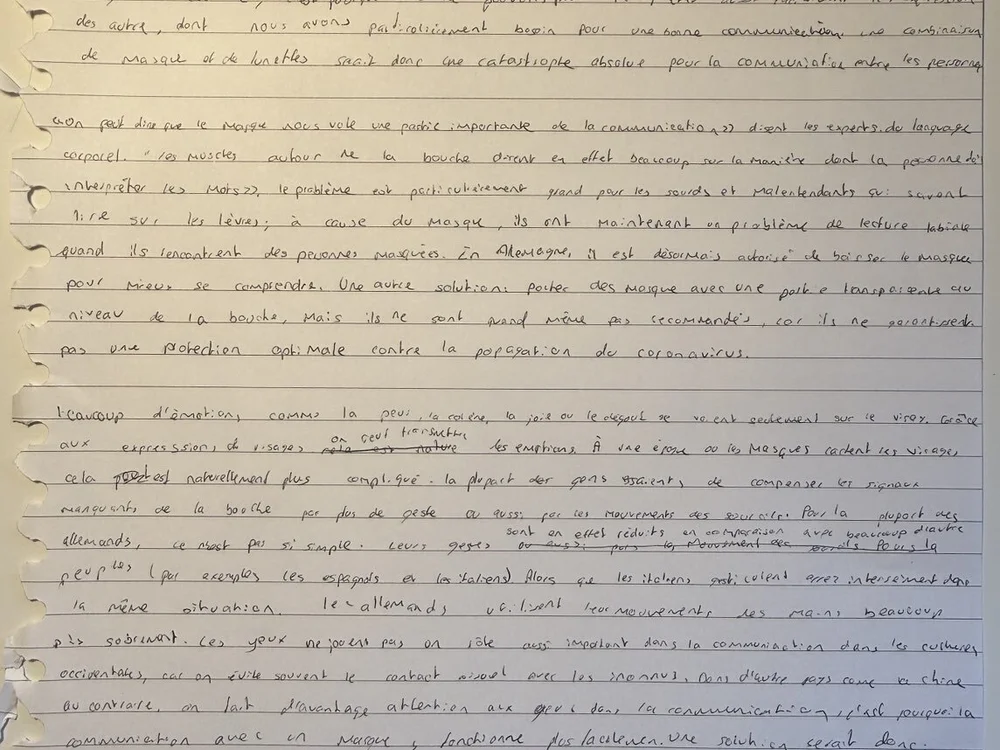 des autre, dont nous avons particulièrement besoin pour une bonne communication, une combinaison
de masque et de lunettes serait donc une catastrophe absolue pour la communication entre les personne
<<on peut dire que le masque nous vole une partie importante de la communication>> disent les experts du language
corporel. "les muscles autour de la bouche disent en effet beaucoup sur la manière dont la personne
interpréter les mots>>, le problème est particulièrement grand pour les sourds et malentendants qui savent
lire sur les lèvres; à cause du masque, ils ont maintenant un problème de lecture labiale
quand ils rencontrent des personnes masquées. En Allemagne, il est désormais autorisé de baisser le masque
pour mieux se comprendre. Une autre solution: porter des masque avec une partie transparente au
niveau de la bouche, mais ils ne sont quand même pas recommandés, car ils ne garantissent
pas une protection optimale contre la propagation du coronavirus.
Beaucoup d'émotions comme la peur, la colère, la joie ou le dégout se voient seulement sur le visage. Grâce
aux expressions de visages on peut transmettre les emotions. À une époque où les masques cachent les visages
cela est naturellement plus compliqué. la plupart des gens essaient de compenser les signaux
manquants de la bouche par plus de geste ou aussi par les mouvements des sourcils. Pour la plupart des
allemands, ce n'est pas si simple. Leurs gestes sont en effet réduits en comparaison avec beaucoup d'autre
peuples (par exemples les espagnols et les italiens) Alors que les italiens gesticulent assez intensément dans
la même situation. les allemands utilisent leur mouvements des mains beaucoup
plus sobrement. Les yeux ne jouent pas un rôle aussi important dans la communication dans les cultures
occidentales, car on évite souvent le contact visuel avec les inconnus. Dans d'autre pays come la chine
au contraire, on fait d'avantage attention aux yeux dans la communication, c'est pourquoi la
communication avec un masque fonctionne plus facilement. Une solution serait donc